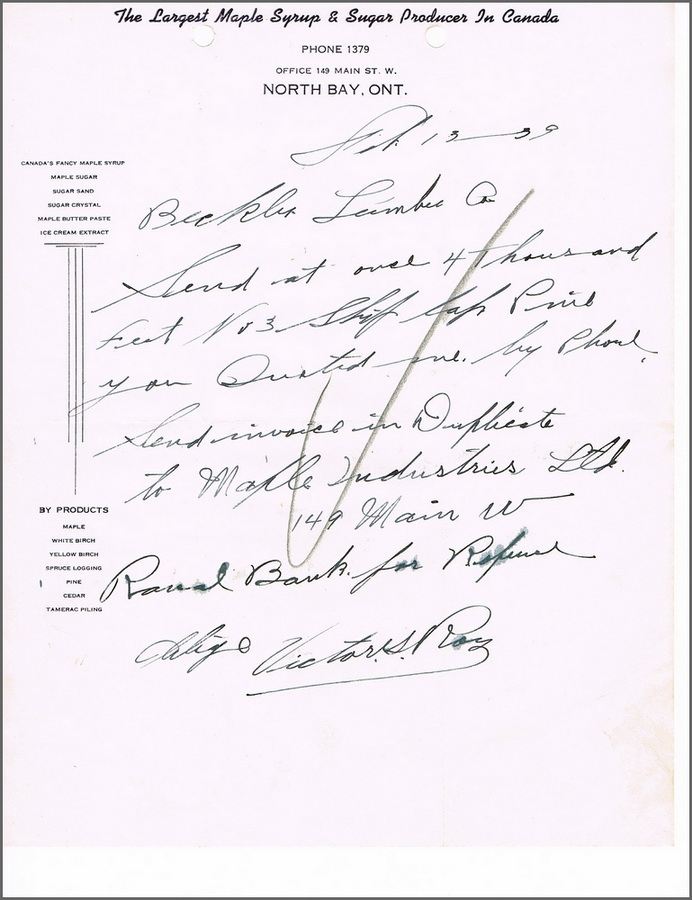 The Largest Maple Syrup & Sugar Producer In Canada
PHONE 1379
OFFICE 149 MAIN ST. W.
NORTH BAY, ONT.
Feb 13 — 39
CANADA'S FANCY MAPLE SYRUP
MAPLE SUGAR
SUGAR SAND
SUGAR CRYSTAL
MAPLE BUTTER PASTE
ICE CREAM EXTRACT
Lumber Co
Send at once 4 thousand
Feet No 3 Ship Lap Pine
you Quoted me. by Phone.
Send invoice in Duplicate
to Maple Industries Ltd.
149 Main W
Bank for
Oblige Victor S. Roy
BY PRODUCTS
MAPLE
WHITE BIRCH
YELLOW BIRCH
SPRUCE LOGGING
PINE
CEDAR
TAMERAC PILING